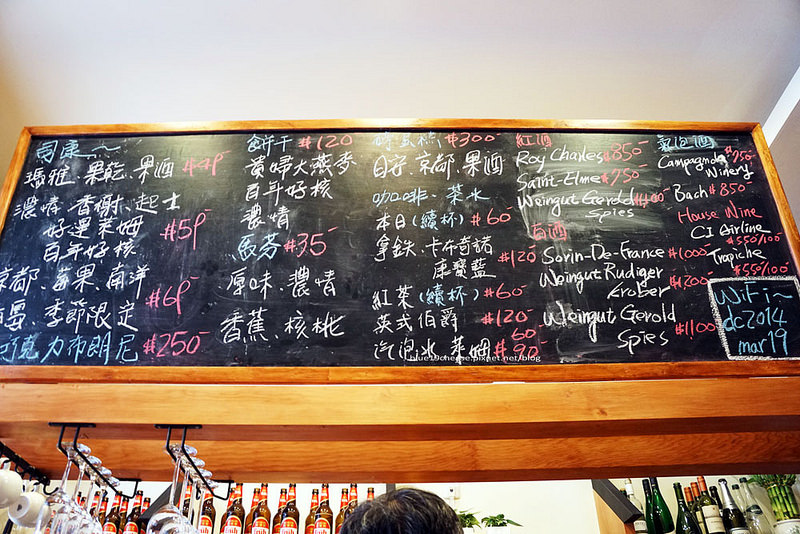 瑪雅、果乾、果酒 $49-
濃情、香榭、起士
好運萊姆
百年好核
$59-
京都、莓果、南洋
季節限定
$69-
巧克力布朗尼 $250-
餅干 $120
貴婦大燕麥
百年好核
濃情
馬芬 $35-
原味、濃情
香蕉、核桃
$300-
京都、果酒
咖啡、茶水
本日(續杯) $60-
拿鐵、卡布奇諾
康寶藍
$120-
紅茶(續杯) $60-
英式伯爵 $120-
汽泡水、萊姆 $60-
$90-
紅酒
Roy Charles $850-
Saint-Elme $950-
Weingut Gerold
Spies
白酒
Sorin-De-France $1000-
Weingut Rudiger
Kröber
Weingut Gerold
Spies
$1100-
氣泡酒
Campagnola
Winery
$950-
Bach $850-
House Wine
CI Airline
$550/100-
Trapiche
$550/100-
WiFi~
dc2014
mar19